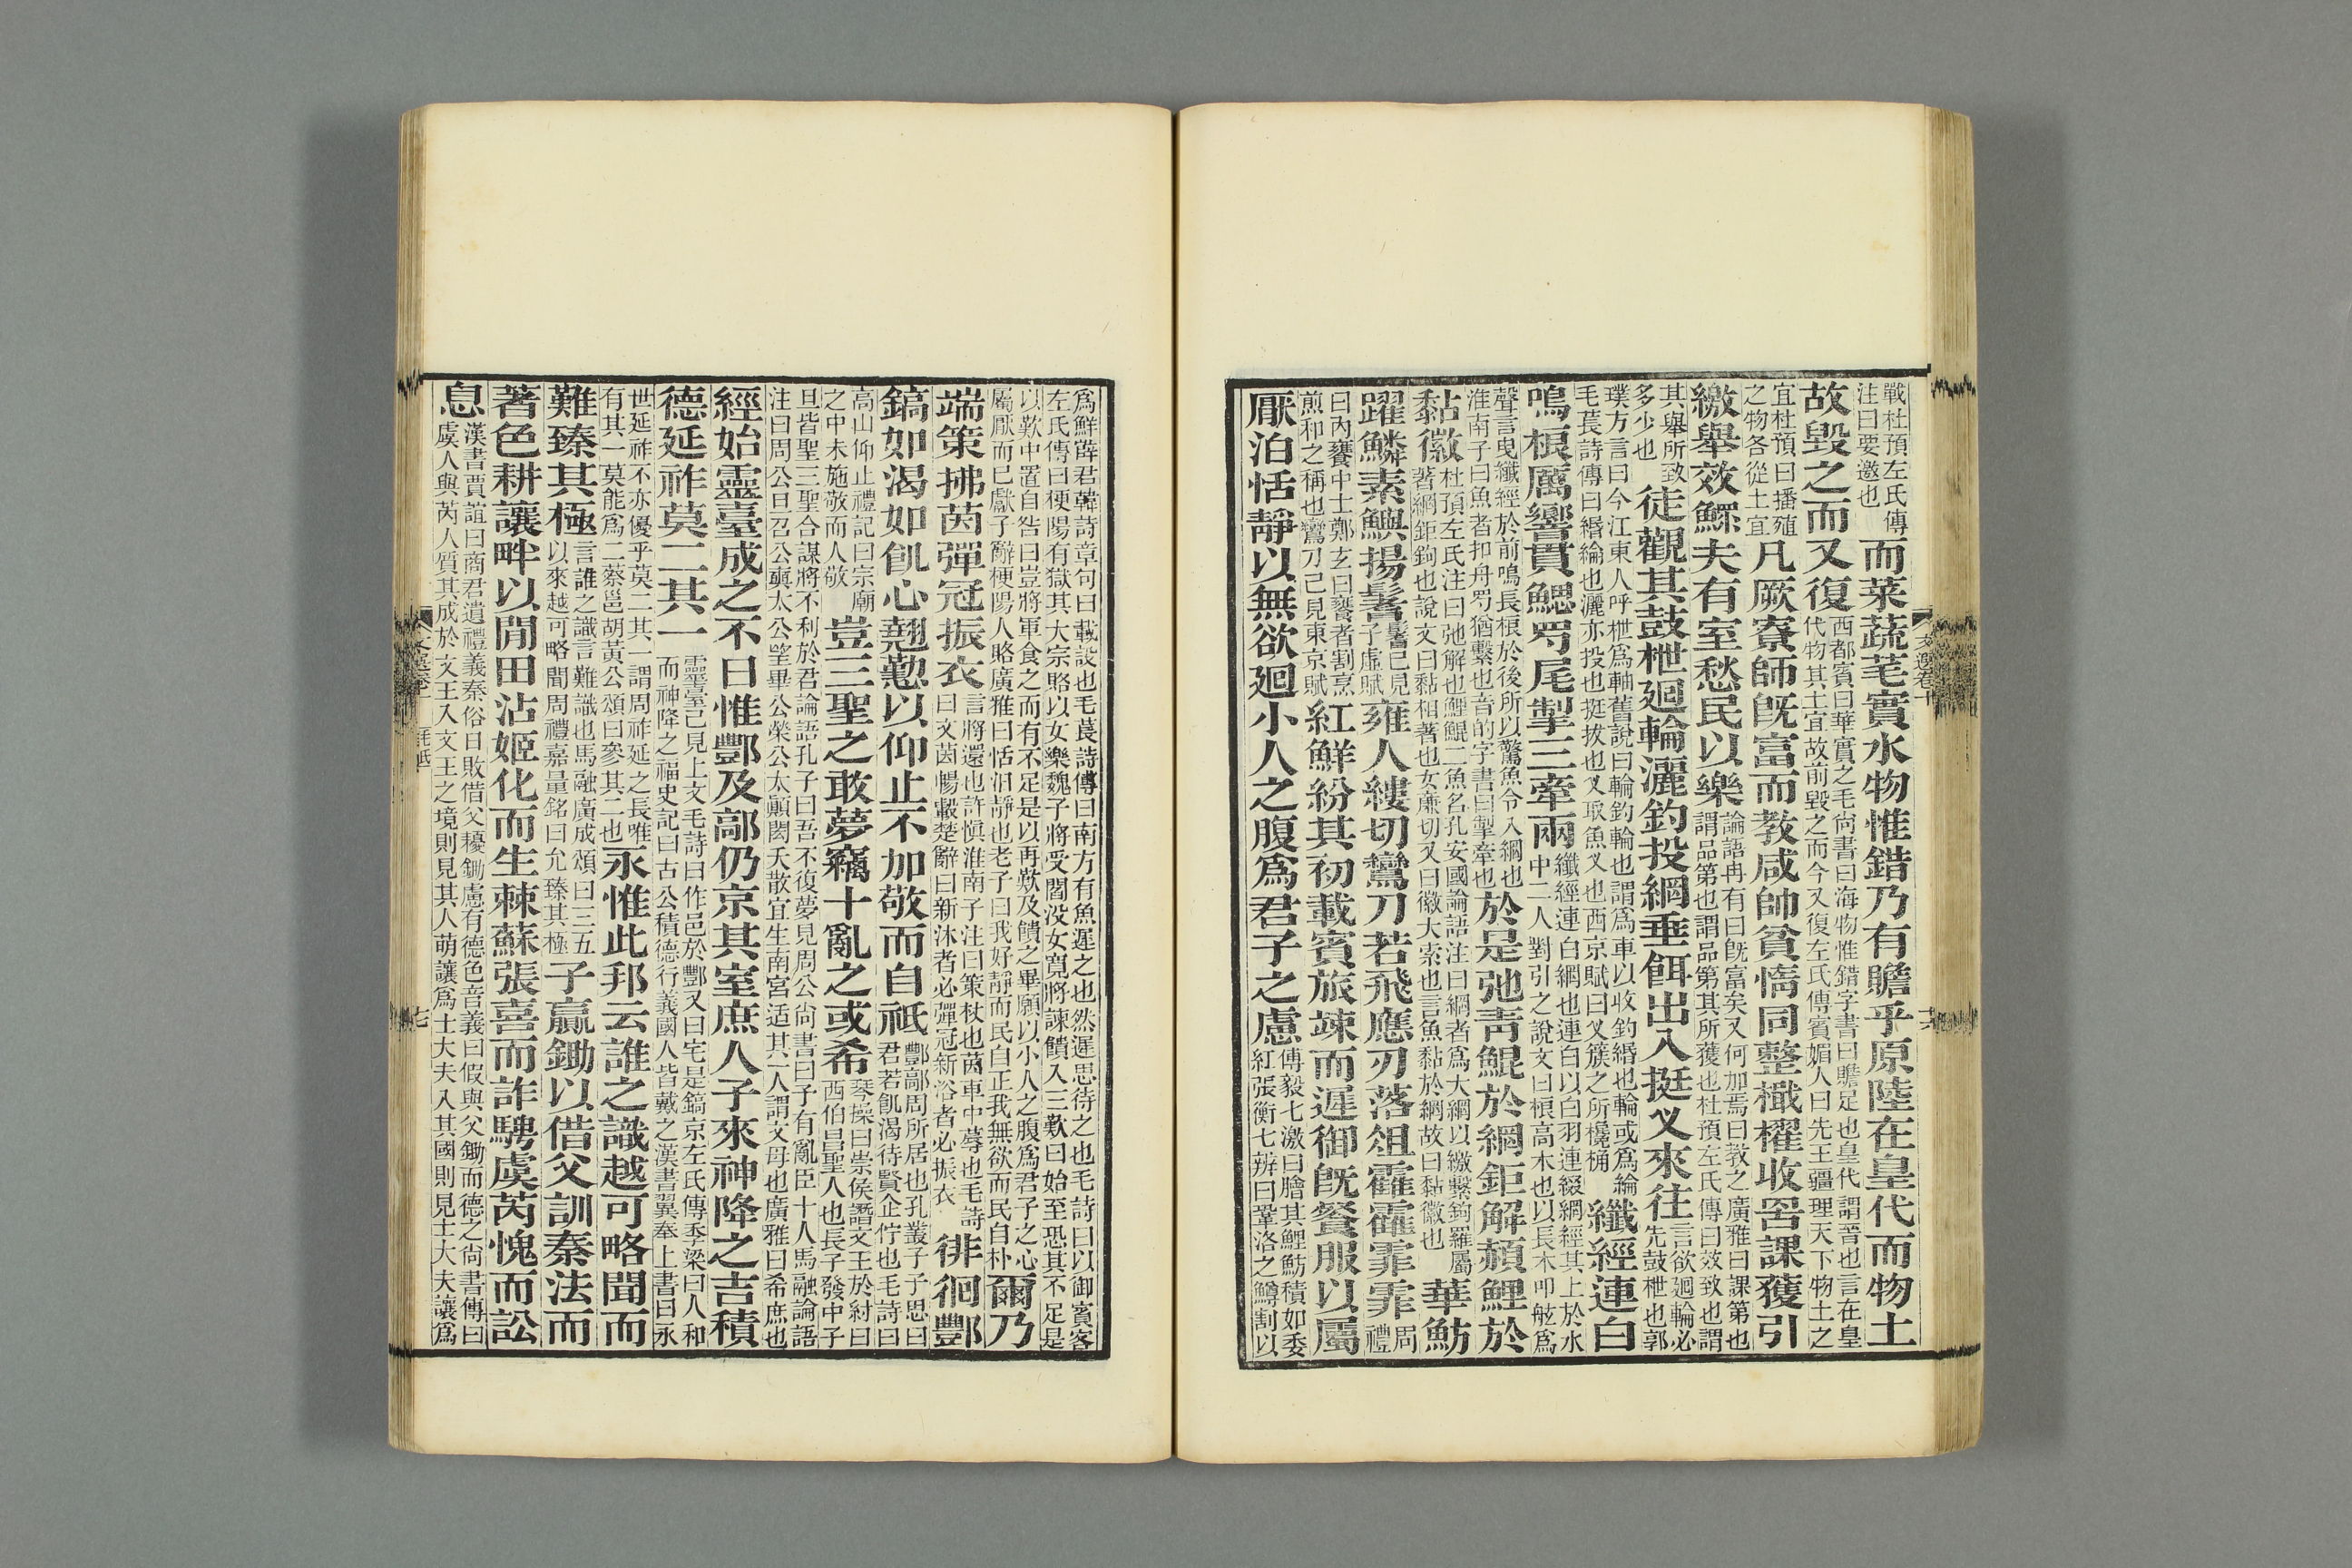 戰杜預左氏傳
注曰要邀也
而菜蔬芼實水物惟錯乃有贍乎原陸在皇代而物土
故毀之而又復
西都賓曰華實之毛尙書曰海物惟錯字書曰贍足也皇代謂晉也言在皇
代物其土宜故前毀之而今又復左氏傳賓媚人曰先王疆理天下物土之
宜杜預曰播殖
之物各從土宜
凡厥寮師旣富而教咸帥貧惰同整檝櫂收罟課獲引
繳舉效鰥夫有室愁民以樂
論語冉有曰旣富矣又何加焉曰教之廣雅曰課第也
謂品第也謂品第其所獲也杜預左氏傳曰效致也謂
其舉所致
多少也
徒觀其鼓枻廻輪灑釣投網垂餌出入挺叉來往
言欲廻輪必
先鼓枻也郭
璞方言曰今江東人呼枻爲軸舊說曰輪釣輪也謂爲車以收釣緡也輪或爲綸
毛萇詩傳曰緡綸也灑亦投也挺拔也叉取魚叉也西京賦曰叉簇之所攙捅
纖經連白
鳴桹厲響貫鰓罥尾掣三牽兩
纖經連白網也連白以白羽連綴網經其上於水
中二人對引之說文曰桹高木也以長木叩舷爲
聲言曳纖經於前鳴長桹於後所以驚魚令入網也
淮南子曰魚者扣舟罥猶繫也音的字書曰掣牽也
於是弛靑鯤於網鉅解頳鯉於
黏徽
杜預左氏注曰弛解也鯉鯤二魚名孔安國論語注曰網者爲大網以繳繫鉤羅屬
著網鉅鉤也說文曰黏相著也女廉切又曰徽大索也言魚黏於網故曰黏徽也
華魴
躍鱗素鱮揚鬐
鬐已見
子虛賦
雍人縷切鸞刀若飛應刃落俎霍霍霏霏
周
禮
曰內饔中士鄭玄曰饔者割烹
煎和之稱也鸞刀已見東京賦
紅鮮紛其初載賓旅竦而遲御旣餐服以屬
厭泊恬靜以無欲廻小人之腹爲君子之慮
傅毅七激曰膾其鯉魴積如委
紅張衡七辨曰鞏洛之鱒割以
爲鮮薛君韓詩章句曰載設也毛萇詩傳曰南方有魚遲之也然遲思待之也毛詩曰以御賓客
左氏傳曰梗陽有獄其大宗賂以女樂魏子將受閻沒女寬將諫饋入三歎曰始至恐其不足是
以歎中置自咎曰豈將軍食之而有不足是以再歎及饋之畢願以小人之腹爲君子之心
屬厭而已獻子辭梗陽人賂廣雅曰恬泊靜也老子曰我好靜而民自正我無欲而民自朴
爾乃
端策拂茵彈冠振衣
言將還也許愼淮南子注曰策杖也茵車中蓐也毛詩
曰文茵暢轂楚辭曰新沐者必彈冠新浴者必振衣
徘徊酆
鎬如渴如飢心翹懃以仰止不加敬而自祗
酆鄗周所居也孔叢子子思曰
君若飢渴待賢企佇也毛詩曰
高山仰止禮記曰宗廟
之中未施敬而人敬
豈三聖之敢夢竊十亂之或希
琴操曰崇侯譖文王於紂曰
西伯昌聖人也長子發中子
旦皆聖三聖合謀將不利於君論語孔子曰吾不復夢見周公尙書曰予有亂臣十人馬融論語
注曰周公旦召公奭太公望畢公榮公太顚閎夭散宜生南宮适其一人謂文母也廣雅曰希庶也
經始靈臺成之不日惟酆及鄗仍京其室庶人子來神降之吉積
德延祚莫二其一
靈臺已見上文毛詩曰作邑於酆又曰宅是鎬京左氏傳季梁曰人和
而神降之福史記曰古公積德行義國人皆戴之漢書翼奉上書曰永
世延祚不亦優乎莫二其一謂周祚延之長唯
有其一莫能爲二蔡邕胡黃公頌曰參其二也
永惟此邦云誰之識越可略聞而
難臻其極
言誰之識言難識也馬融廣成頌曰三五
以來越可略聞周禮嘉量銘曰允臻其極
子贏鋤以借父訓秦法而
著色耕讓畔以閒田沾姬化而生棘蘇張喜而詐騁虞芮愧而訟
息
漢書賈誼曰商君遺禮義秦俗日敗借父耰鋤慮有德色音義曰假與父鋤而德之尙書傳曰
虞人與芮人質其成於文王入文王之境則見其人萌讓爲士大夫入其國則見士大夫讓爲